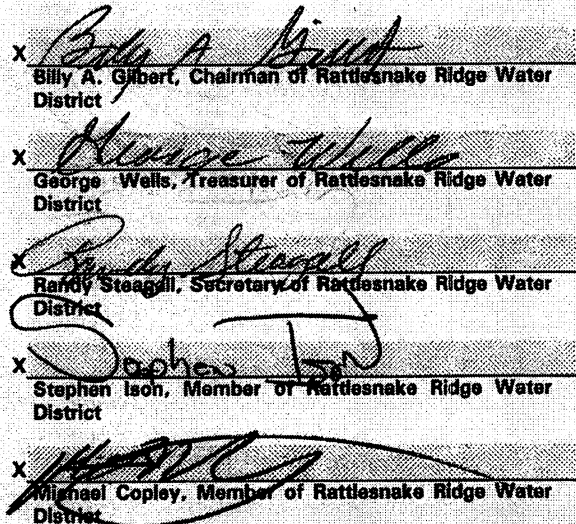 X Billy A. Gilbert
Billy A. Gilbert, Chairman of Rattlesnake Ridge Water
District
X George Wells
George Wells, Treasurer of Rattlesnake Ridge Water
District
X Randy Steagall
Randy Steagall, Secretary of Rattlesnake Ridge Water
District
X Stephen Ison
Stephen Ison, Member of Rattlesnake Ridge Water
District
X
Michael Copley, Member of Rattlesnake Ridge Water
District